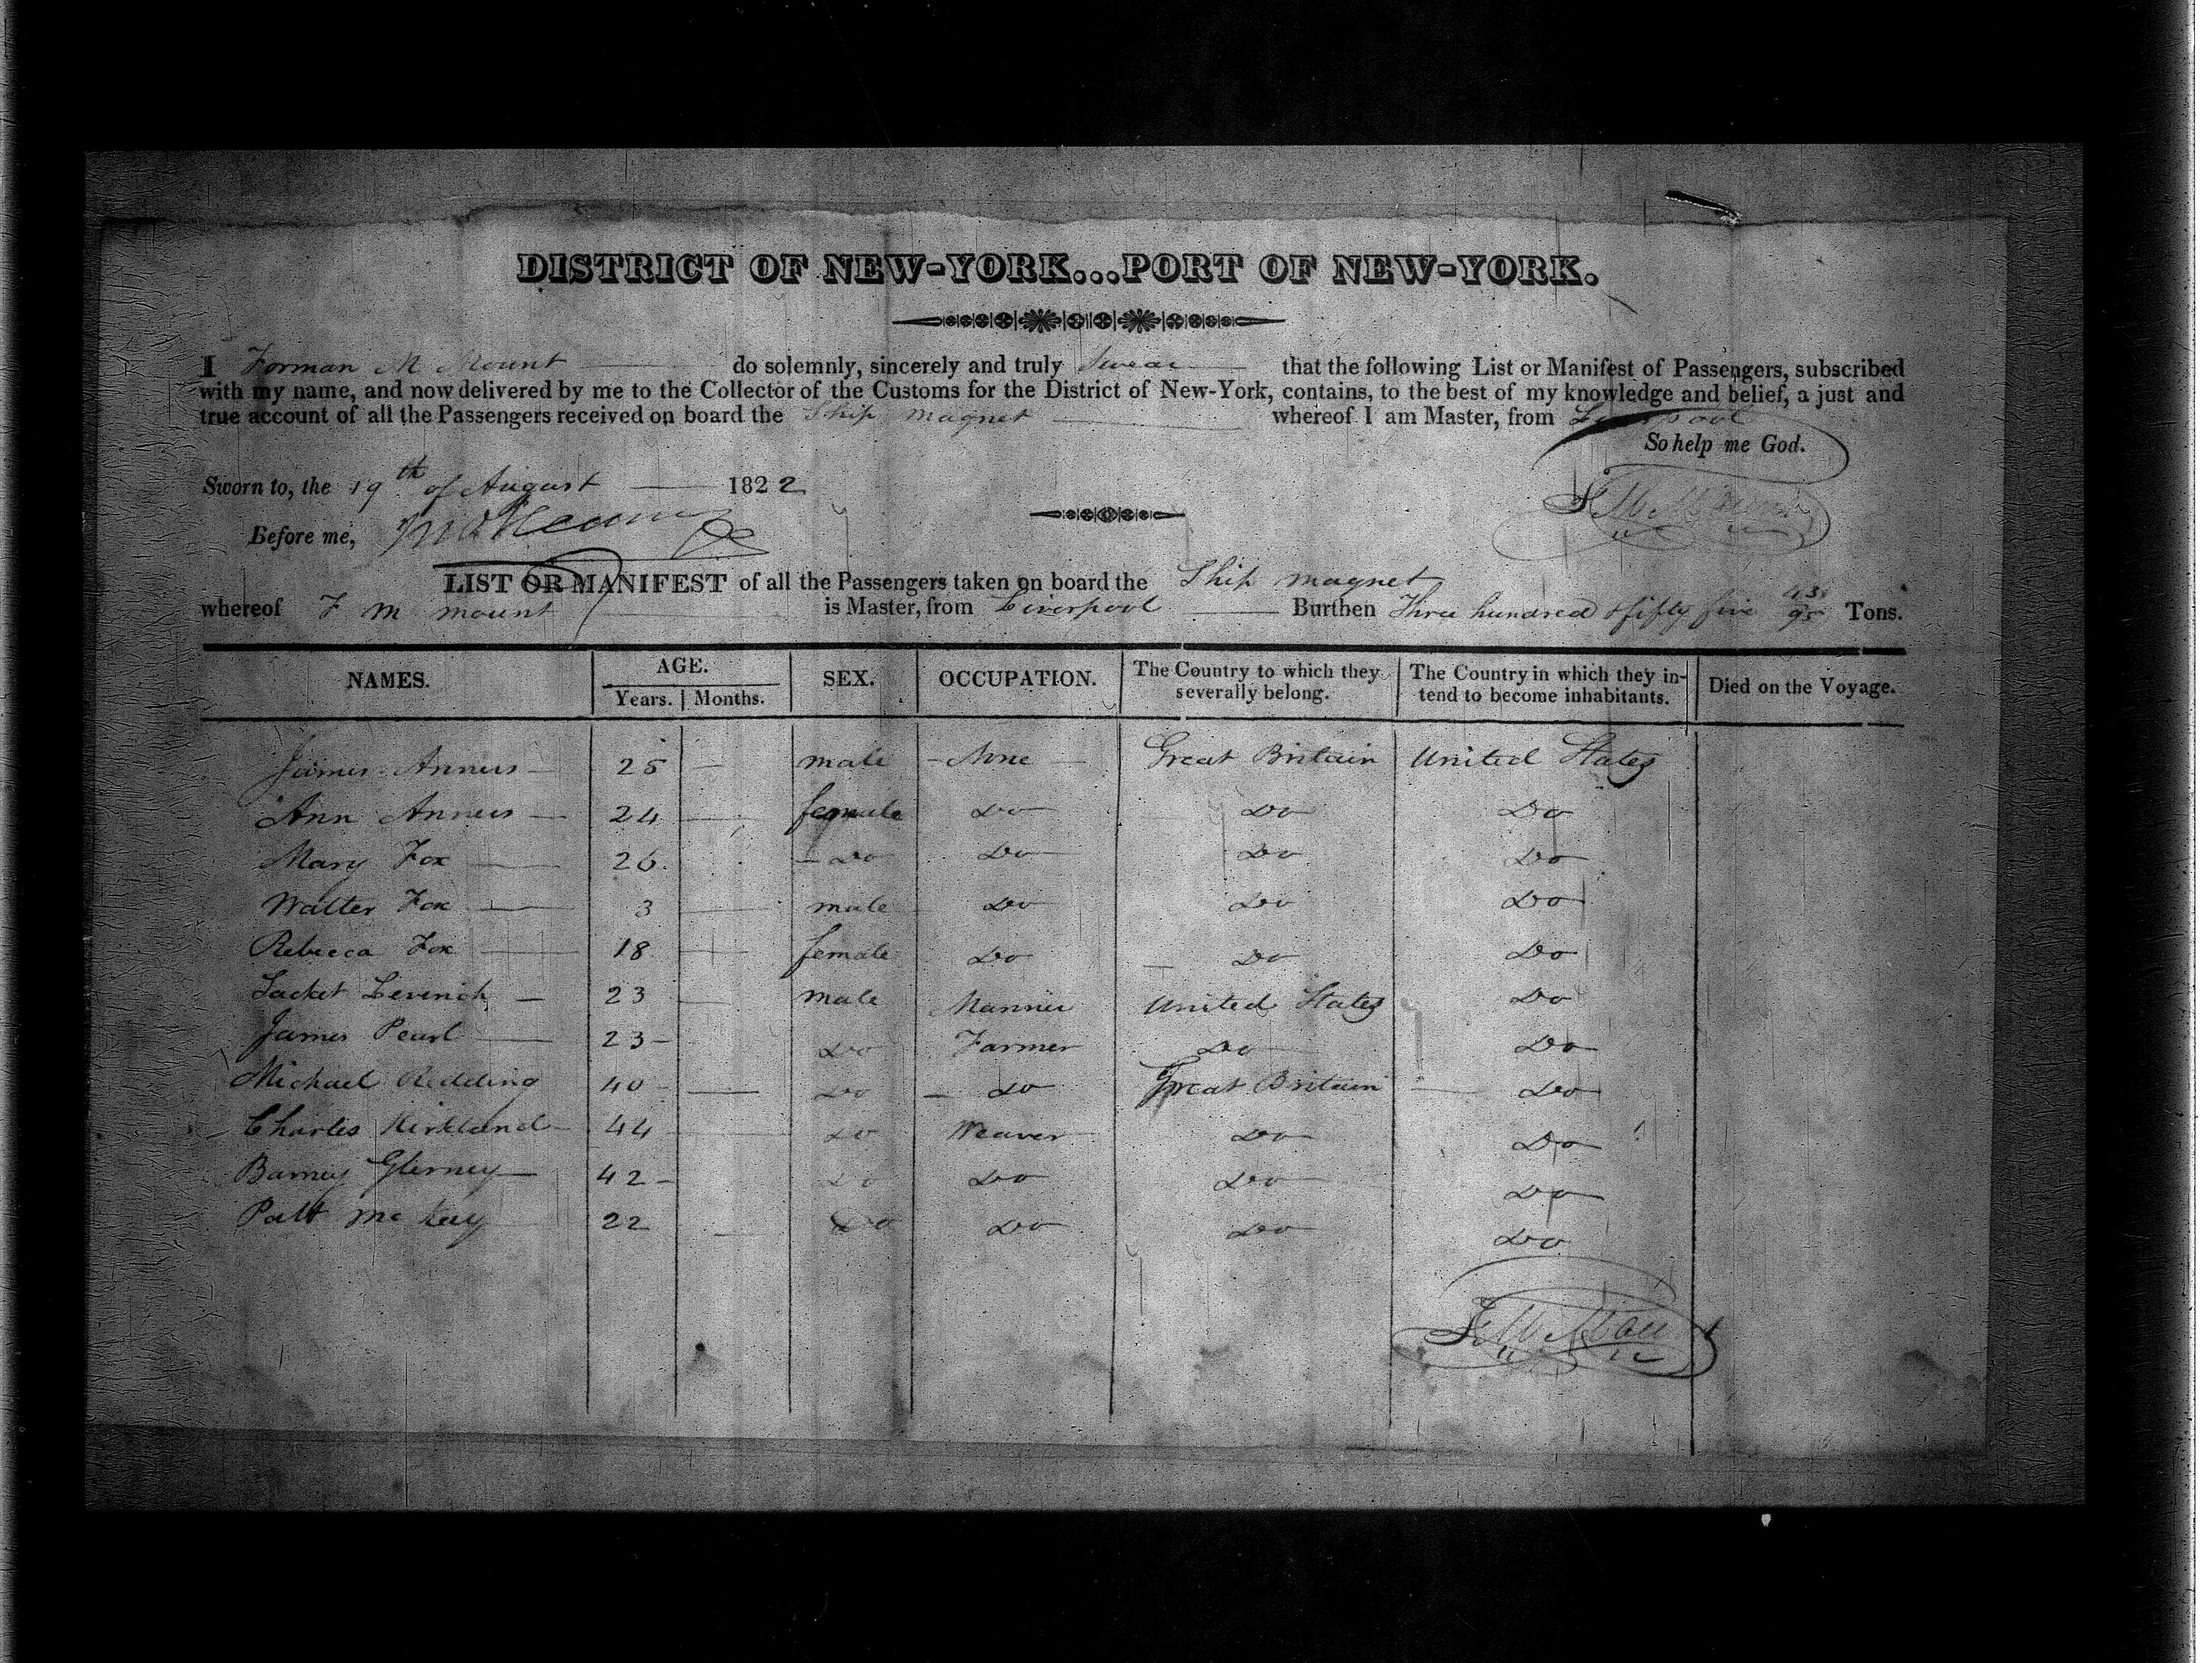 DISTRICT OF NEW-YORK...PORT OF NEW-YORK.
I Forman M Mount do solemnly, sincerely and truly swear that the following List or Manifest of Passengers, subscribed
with my name, and now delivered by me to the Collector of the Customs for the District of New-York, contains, to the best of my knowledge and belief, a just and
true account of all the Passengers received on board the Ship Magnet whereof I am Master, from Liverpool
So help me God.
Sworn to, the 19th of August 1822
F M Mount
Before me,
LIST OR MANIFEST of all the Passengers taken on board the Ship magnet
whereof F M Mount is Master, from Liverpool Burthen Three hundred & fifty five 43/95 Tons.
NAMES. AGE. Years. Months. SEX. OCCUPATION. The Country to which they severally belong. The Country in which they intend to become inhabitants. Died on the Voyage.
James Annus 25 — male None Great Britain United States
Ann Annus 24 — female Do Do Do
Mary Fox 26 Do Do Do Do
Walter Fox 3 — male Do Do Do
Rebecca Fox 18 — female Do Do Do
Lacket 23 — male Mariner United States Do
James Pearl 23 Do Farmer Do Do
Michael Redding 40 — Do Do Great Britain Do
Charles Kirkland 44 — Do Weaver Do Do
Barney Glerney 42 Do Do Do Do
Patt McKay 22 — Do Do Do Do
F M Mount